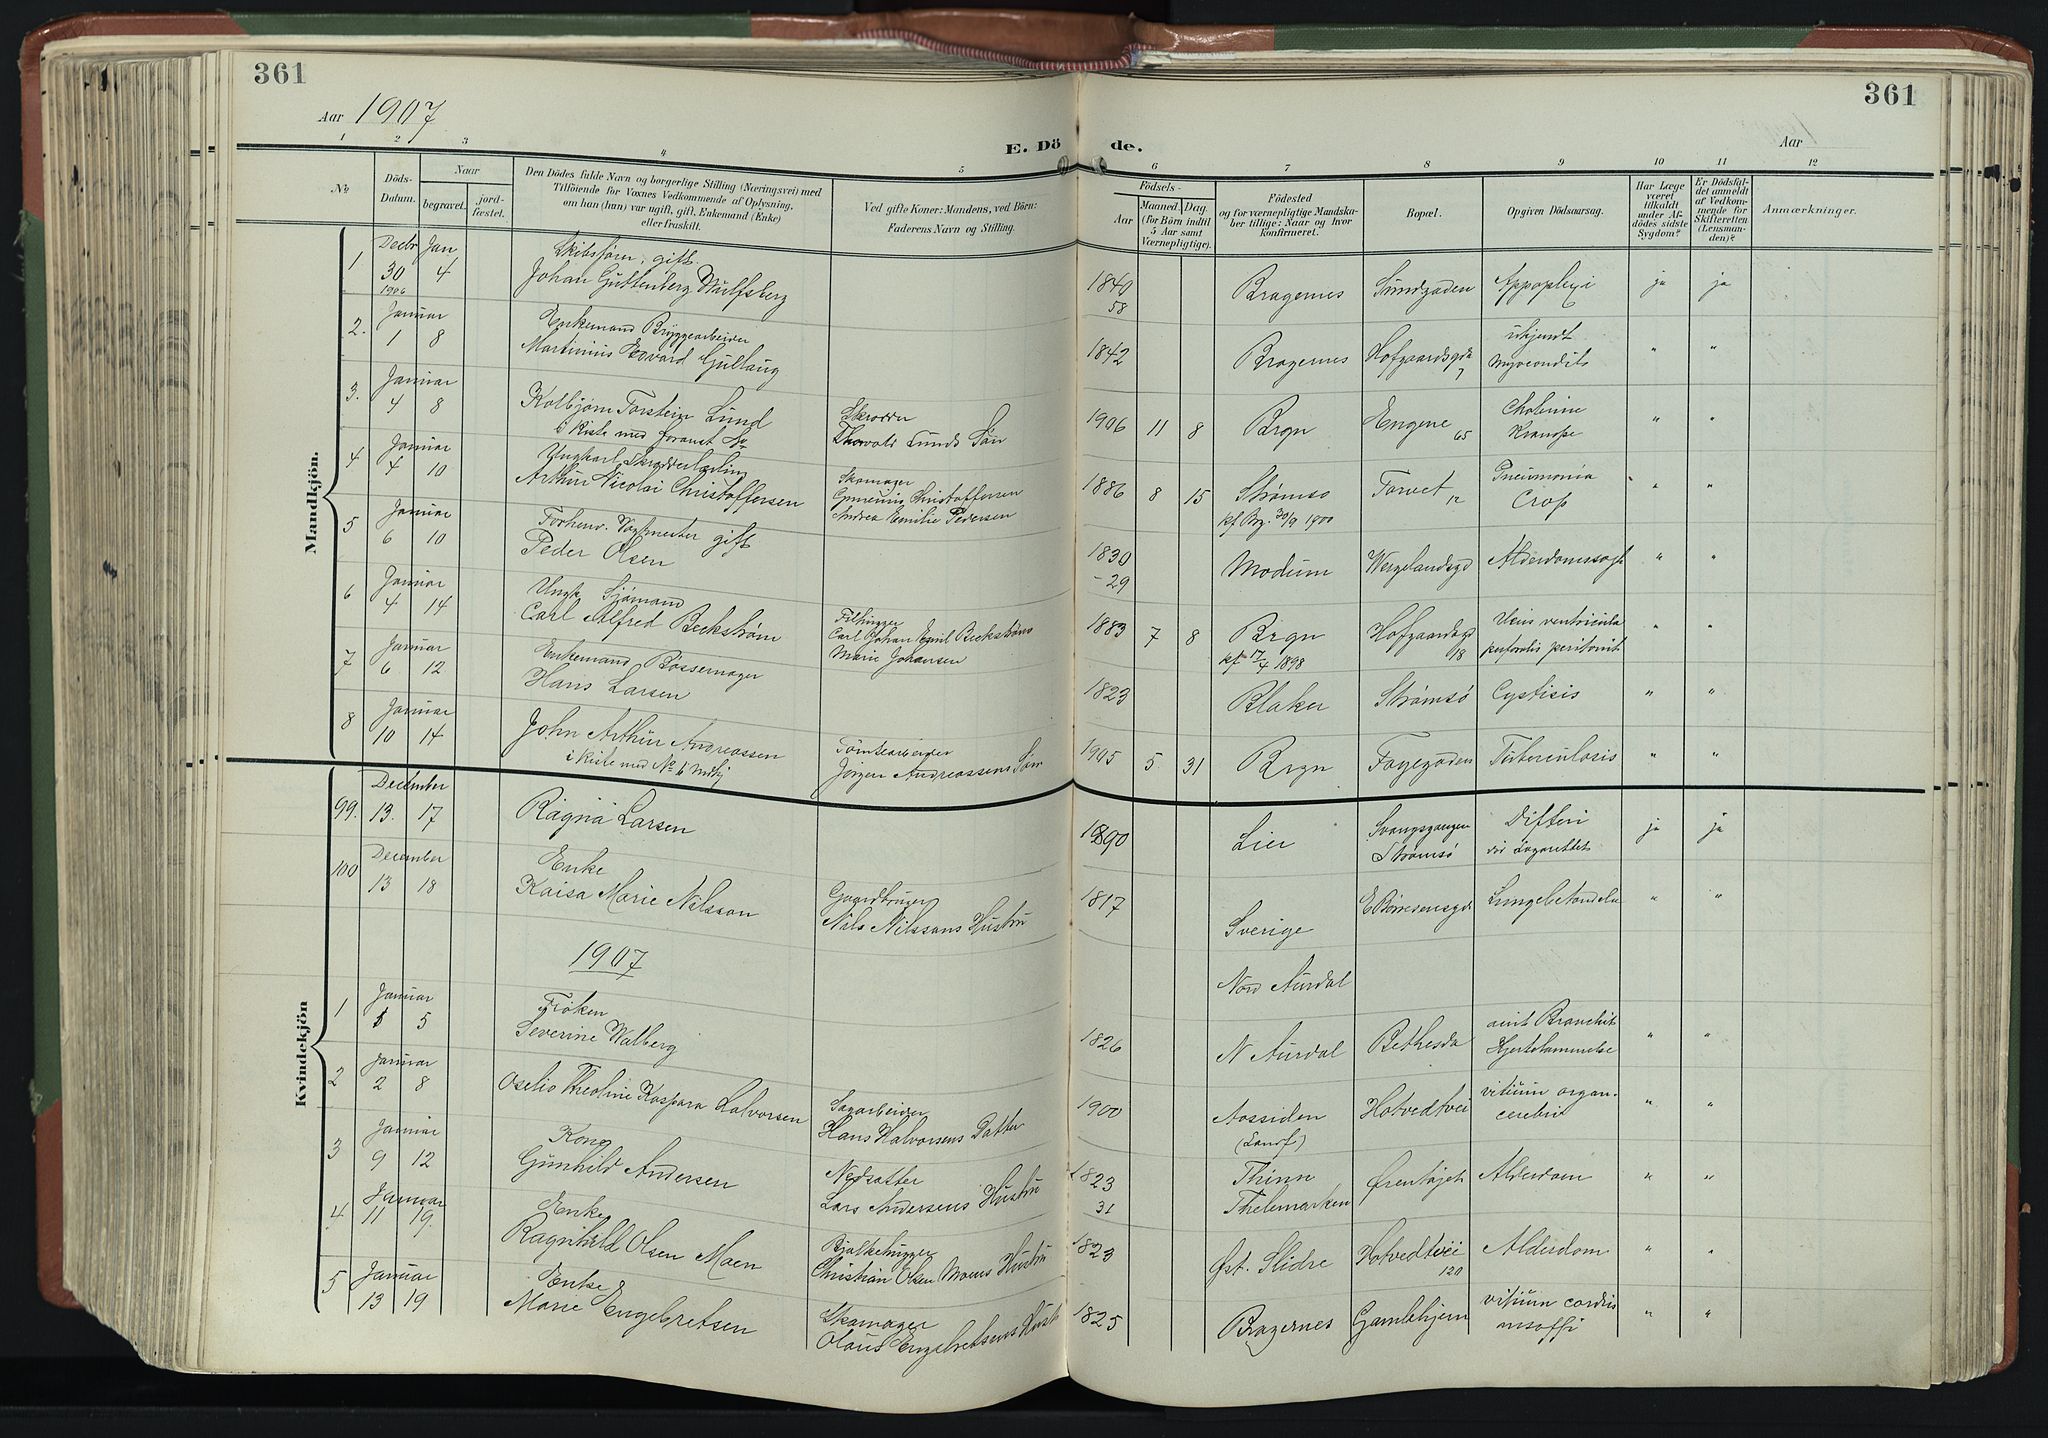 361
361
Aar 1907
E. Dö de.
Aar
1 2 3 4 5 6 7 8 9 10 11 12
No
Döds-Datum.
Naar
begravet.
jord-fæstet.
Den Dödes fulde Navn og borgerlige Stilling (Næringsvei) med
Tilföiende for Voxnes Vedkommende af Oplysning,
om han (hun) var ugift, gift, Enkemand (Enke)
eller fraskilt.
Ved gifte Koner: Mandens, ved Börn:
Faderens Navn og Stilling.
Födsels-
Aar
Maaned. Dag.
(for Börn indtil
5 Aar samt
Værnepligtige).
Födested
og for værnepligtige Mandska-
ber tillige: Naar og hvor
konfirmeret.
Bopæl.
Opgiven Dödsaarsag.
Har Læge
været
tilkaldt
under Af-
dödes sidste
Sygdom?
Er Dödsfal-
det anmeldt
af Vedkom-
mende for
Skifteretten
(Lensman-
den)?
Anmærkninger.
Mandkjön.
Decbr Jan Skibsfører, gift.
1 30 4 Johan Guttenberg Wulfsberg 1840 Bragernes Sundgaden Appoplexi ja ja
1906 58
Januar Enkemand Bryggearbeider ukjendt
2. 1 8 Martinius Edvard Gullaug 1842 Bragernes Hofgaardsgd 7 " "
Januar Kolbjørn Torstein Lund Skrædder Cholerine
3. 4 8 i Kiste med Thorvald Lunds Søn 1906 11 8 Brgn Engene 65 Krampe " "
Januar Ungkarl Skrædderlærling Skomager Pneumonia
4 4 10 Arthur Nicolai Christoffersen Christoffersen 1886 8 15 Strømsø Torvet 12 Crop " "
Andrea Emilie Pedersen kf. Brg. 30/9 1900
Januar Forhenv. Vagtmester gift
5 6 10 Peder Olsen 1830 Modum Wergelandsgd Alderdomssvagh " "
- 29
Januar Ungk. Sjømand Filhugger Ulcus ventriculi
6 4 14 Carl Alfred Beckstrøm Carl Johan Emil Beckstrøms 1883 7 8 Brgn Hofgaardsgd 18 peritonit " "
Marie Johansen kf 17/4 1898
Januar Enkemand Bøssemager
7 6 12 Hans Larsen 1823 Blaker Strømsø Cystisis " "
Januar
8 10 14 John Arthur Andreassen Tomtearbeider 1905 5 31 Brgn Fagegaden Tuberculosis " "
i Kiste med No 6 Mdkj Jørgen Andreassens Søn
Kvindekjön
December
99. 13. 17 Ragna Larsen 1890 Lier Svangsgangen Strømsø Difteri Lazarettet ja ja
December Enke
100 13 18 Kaisa Marie Nilsson Gaardbruger Nils Nilssons Hustru 1817 Sverige E Børresensgd Lungebetændelse " "
1907
Nord Aurdal
Januar Frøken Bronchit
1 5 5 Severine Walberg 1826 N Aurdal Bethesda Hjertelammelse " "
Januar vitium organ.
2 2 8 Oselio Theoline Kaspara Halvorsen Sagarbeider Hans Halvorsens Datter 1900 Aassiden Hotvedtvei cerebri " "
(Landf)
Januar Kone
3 9 12 Gunhild Andersen Nedsætter Lars Andersens Hustru 1823 Thinn Ørentøjet Alderdom " "
31 Thelemarken
Januar Enke
4 11 19. Ragnhild Olsen Moen Bjælkehugger Christian Olsen Moens Hustru 1823 Øst. Slidre Hotvedtvei 120 Alderdom " "
Januar Enke
5 13 19 Marie Engebretsen Skomager Olaus Engebretsens Hustr 1825 Bragernes Gamlehjem vitium cordis " "